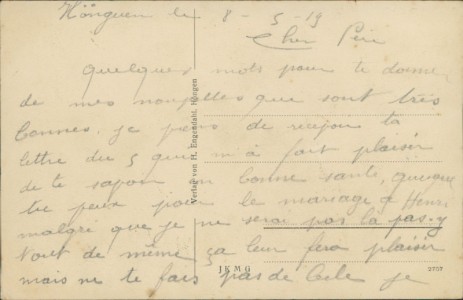 Hönguen le 8 - 5 - 19
Cher Père
quelques mots pour te donner
de mes nouvelles que sont très
bonnes. je de ta
lettre du 5 que m'a fait plaisir
de te en bonne santé, quoique
tu peux pour le mariage d Henri
malgré que je ne serai pas la
tout de même ça leur fera plaisir
mais ne te fais pas de bile je
Verlag von H. Engendahl, Höngen
J K M G
2737